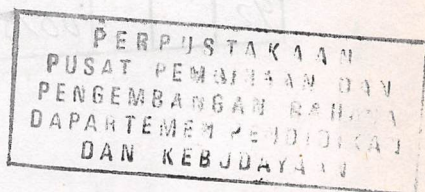 PERPUSTAKAAN
PUSAT PEMBINAAN DAN
PENGEMBANGAN BAHASA
DAPARTEMEN PENDIDIKAN
DAN KEBUDAYAAN